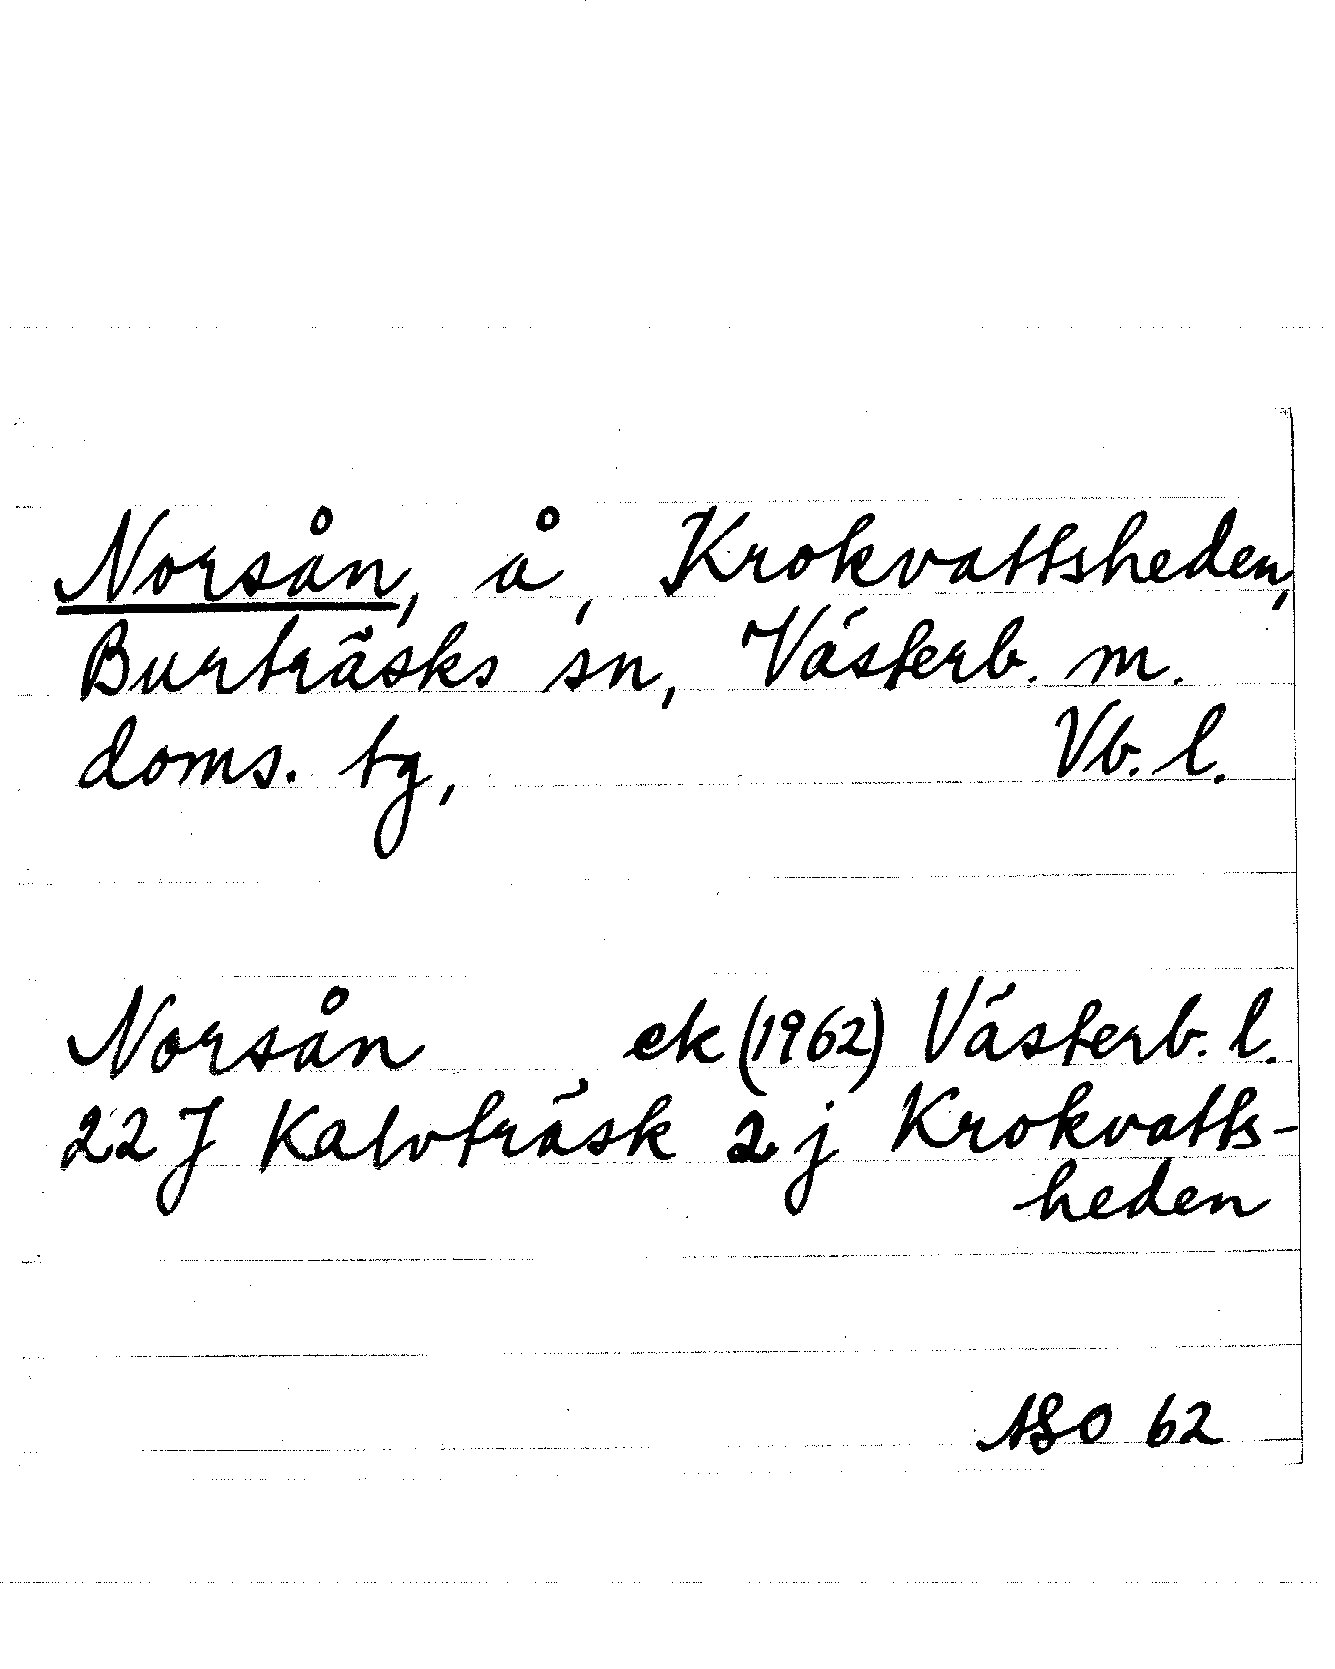 Norsån, å, Krokvattsheden,
Burträsks sn, Västerb. m.
doms. tg, Vb. l.
Norsån ek (1962) Västerb. l.
22 J Kalvträsk 2 j Krokvatts-
heden
ASO 62